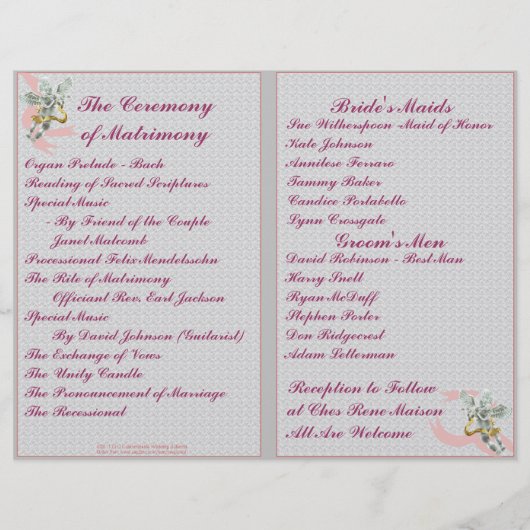 The Ceremony
of Matrimony
Organ Prelude - Bach
Reading of Sacred Scriptures
Special Music
- By Friend of the Couple
Janet Malcomb
Processional Felix Mendelssohn
The Rite of Matrimony
Officiant Rev. Earl Jackson
Special Music
By David Johnson (Guitarist)
The Exchange of Vows
The Unity Candle
The Pronouncement of Marriage
The Recessional
Bride's Maids
Sue Witherspoon -Maid of Honor
Kate Johnson
Annilese Ferraro
Tammy Baker
Candice Portabello
Lynn Crossgate
Groom's Men
David Robinson - Best Man
Harry Snell
Ryan McDuff
Stephen Porter
Don Ridgecrest
Adam Letterman
Reception to Follow
at Ches Rene Maison
All Are Welcome